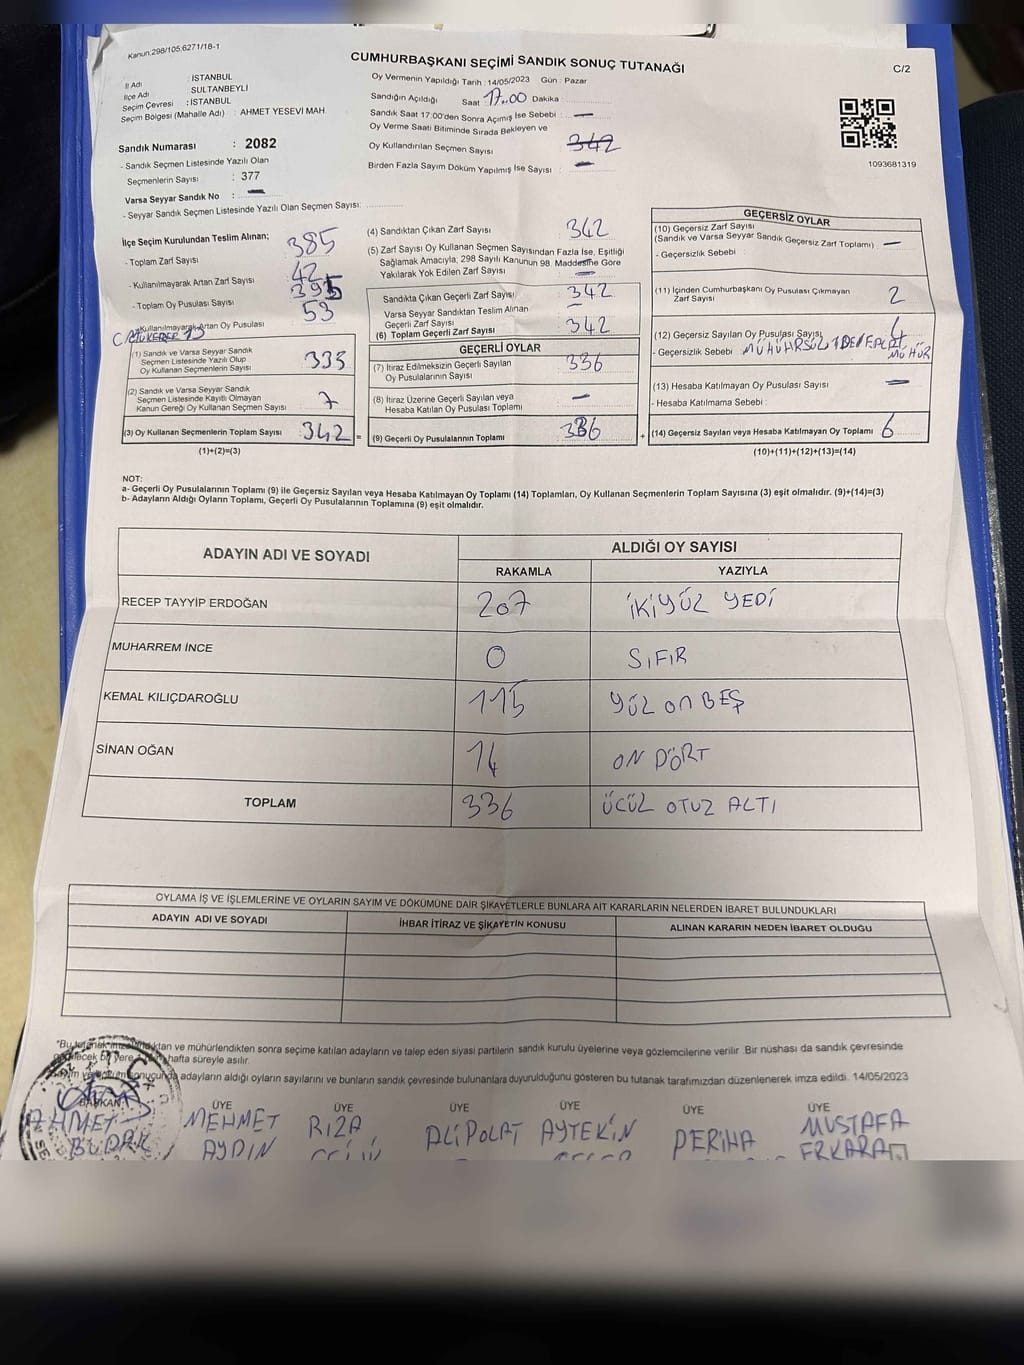 Kanun.298/105.6271/18-1
CUMHURBAŞKANI SEÇİMİ SANDIK SONUÇ TUTANAĞI
C/2
İl Adı : İSTANBUL
İlçe Adı SULTANBEYLİ
Seçim Çevresi : İSTANBUL
Seçim Bölgesi (Mahalle Adı) : AHMET YESEVİ MAH.
Sandık Numarası : 2082
- Sandık Seçmen Listesinde Yazılı Olan
Seçmenlerin Sayısı : 377
Varsa Seyyar Sandık No : —
- Seyyar Sandık Seçmen Listesinde Yazılı Olan Seçmen Sayısı:
Oy Vermenin Yapıldığı Tarih : 14/05/2023 Gün : Pazar
Sandığın Açıldığı Saat 17.00 Dakika :
Sandık Saat 17:00'den Sonra Açılmış İse Sebebi : —
Oy Verme Saati Bitiminde Sırada Bekleyen ve
Oy Kullandırılan Seçmen Sayısı 342
Birden Fazla Sayım Döküm Yapılmış İse Sayısı : —
1093681319
İlçe Seçim Kurulundan Teslim Alınan;
- Toplam Zarf Sayısı 385
- Kullanılmayarak Artan Zarf Sayısı 42
- Toplam Oy Pusulası Sayısı 395
- Kullanılmayarak Artan Oy Pusulası 53
(1) Sandık ve Varsa Seyyar Sandık
Seçmen Listesinde Yazılı Olup
Oy Kullanan Seçmenlerin Sayısı 335
(2) Sandık ve Varsa Seyyar Sandık
Seçmen Listesinde Kayıtlı Olmayan
Kanun Gereği Oy Kullanan Seçmen Sayısı 7
(3) Oy Kullanan Seçmenlerin Toplam Sayısı 342 =
(1)+(2)=(3)
(4) Sandıktan Çıkan Zarf Sayısı 342
(5) Zarf Sayısı Oy Kullanan Seçmen Sayısından Fazla İse, Eşitliği
Sağlamak Amacıyla, 298 Sayılı Kanunun 98. Maddesine Göre
Yakılarak Yok Edilen Zarf Sayısı —
Sandıkta Çıkan Geçerli Zarf Sayısı 342
Varsa Seyyar Sandıktan Teslim Alınan
Geçerli Zarf Sayısı —
(6) Toplam Geçerli Zarf Sayısı 342
GEÇERLİ OYLAR
(7) İtiraz Edilmeksizin Geçerli Sayılan
Oy Pusulalarının Sayısı 336
(8) İtiraz Üzerine Geçerli Sayılan veya
Hesaba Katılan Oy Pusulası Toplamı —
(9) Geçerli Oy Pusulalarının Toplamı 336 +
GEÇERSİZ OYLAR
(10) Geçersiz Zarf Sayısı
(Sandık ve Varsa Seyyar Sandık Geçersiz Zarf Toplamı) —
- Geçersizlik Sebebi :
(11) İçinden Cumhurbaşkanı Oy Pusulası Çıkmayan
Zarf Sayısı 2
(12) Geçersiz Sayılan Oy Pusulası Sayısı 4
- Geçersizlik Sebebi MÜHÜRSÜZ
MÜHÜR
(13) Hesaba Katılmayan Oy Pusulası Sayısı —
- Hesaba Katılmama Sebebi :
(14) Geçersiz Sayılan veya Hesaba Katılmayan Oy Toplamı 6
(10)+(11)+(12)+(13)=(14)
NOT:
a- Geçerli Oy Pusulalarının Toplamı (9) ile Geçersiz Sayılan veya Hesaba Katılmayan Oy Toplamı (14) Toplamları, Oy Kullanan Seçmenlerin Toplam Sayısına (3) eşit olmalıdır. (9)+(14)=(3)
b- Adayların Aldığı Oyların Toplamı, Geçerli Oy Pusulalarının Toplamına (9) eşit olmalıdır.
ADAYIN ADI VE SOYADI ALDIĞI OY SAYISI
RAKAMLA YAZIYLA
RECEP TAYYİP ERDOĞAN 207 İKİYÜZ YEDİ
MUHARREM İNCE 0 SIFIR
KEMAL KILIÇDAROĞLU 115 YÜZ ON BEŞ
SİNAN OĞAN 14 ON DÖRT
TOPLAM 336 ÜCÜZ OTUZ ALTI
OYLAMA İŞ VE İŞLEMLERİNE VE OYLARIN SAYIM VE DÖKÜMÜNE DAİR ŞİKAYETLERLE BUNLARA AİT KARARLARIN NELERDEN İBARET BULUNDUKLARI
ADAYIN ADI VE SOYADI İHBAR İTİRAZ VE ŞİKAYETİN KONUSU ALINAN KARARIN NEDEN İBARET OLDUĞU
*Bu tutanak imzalandıktan ve mühürlendikten sonra seçime katılan adayların ve talep eden siyasi partilerin sandık kurulu üyelerine veya gözlemcilerine verilir .Bir nüshası da sandık çevresinde
bir yere hafta süreyle asılır.
sonucunda adayların aldığı oyların sayılarını ve bunların sandık çevresinde bulunanlara duyurulduğunu gösteren bu tutanak tarafımızdan düzenlenerek imza edildi. 14/05/2023
BAŞKAN ÜYE ÜYE ÜYE ÜYE ÜYE ÜYE
AHMET MEHMET RIZA ALİ POLAT AYTEKİN PERİHA MUSTAFA
BUDAK AYDIN ERKARA